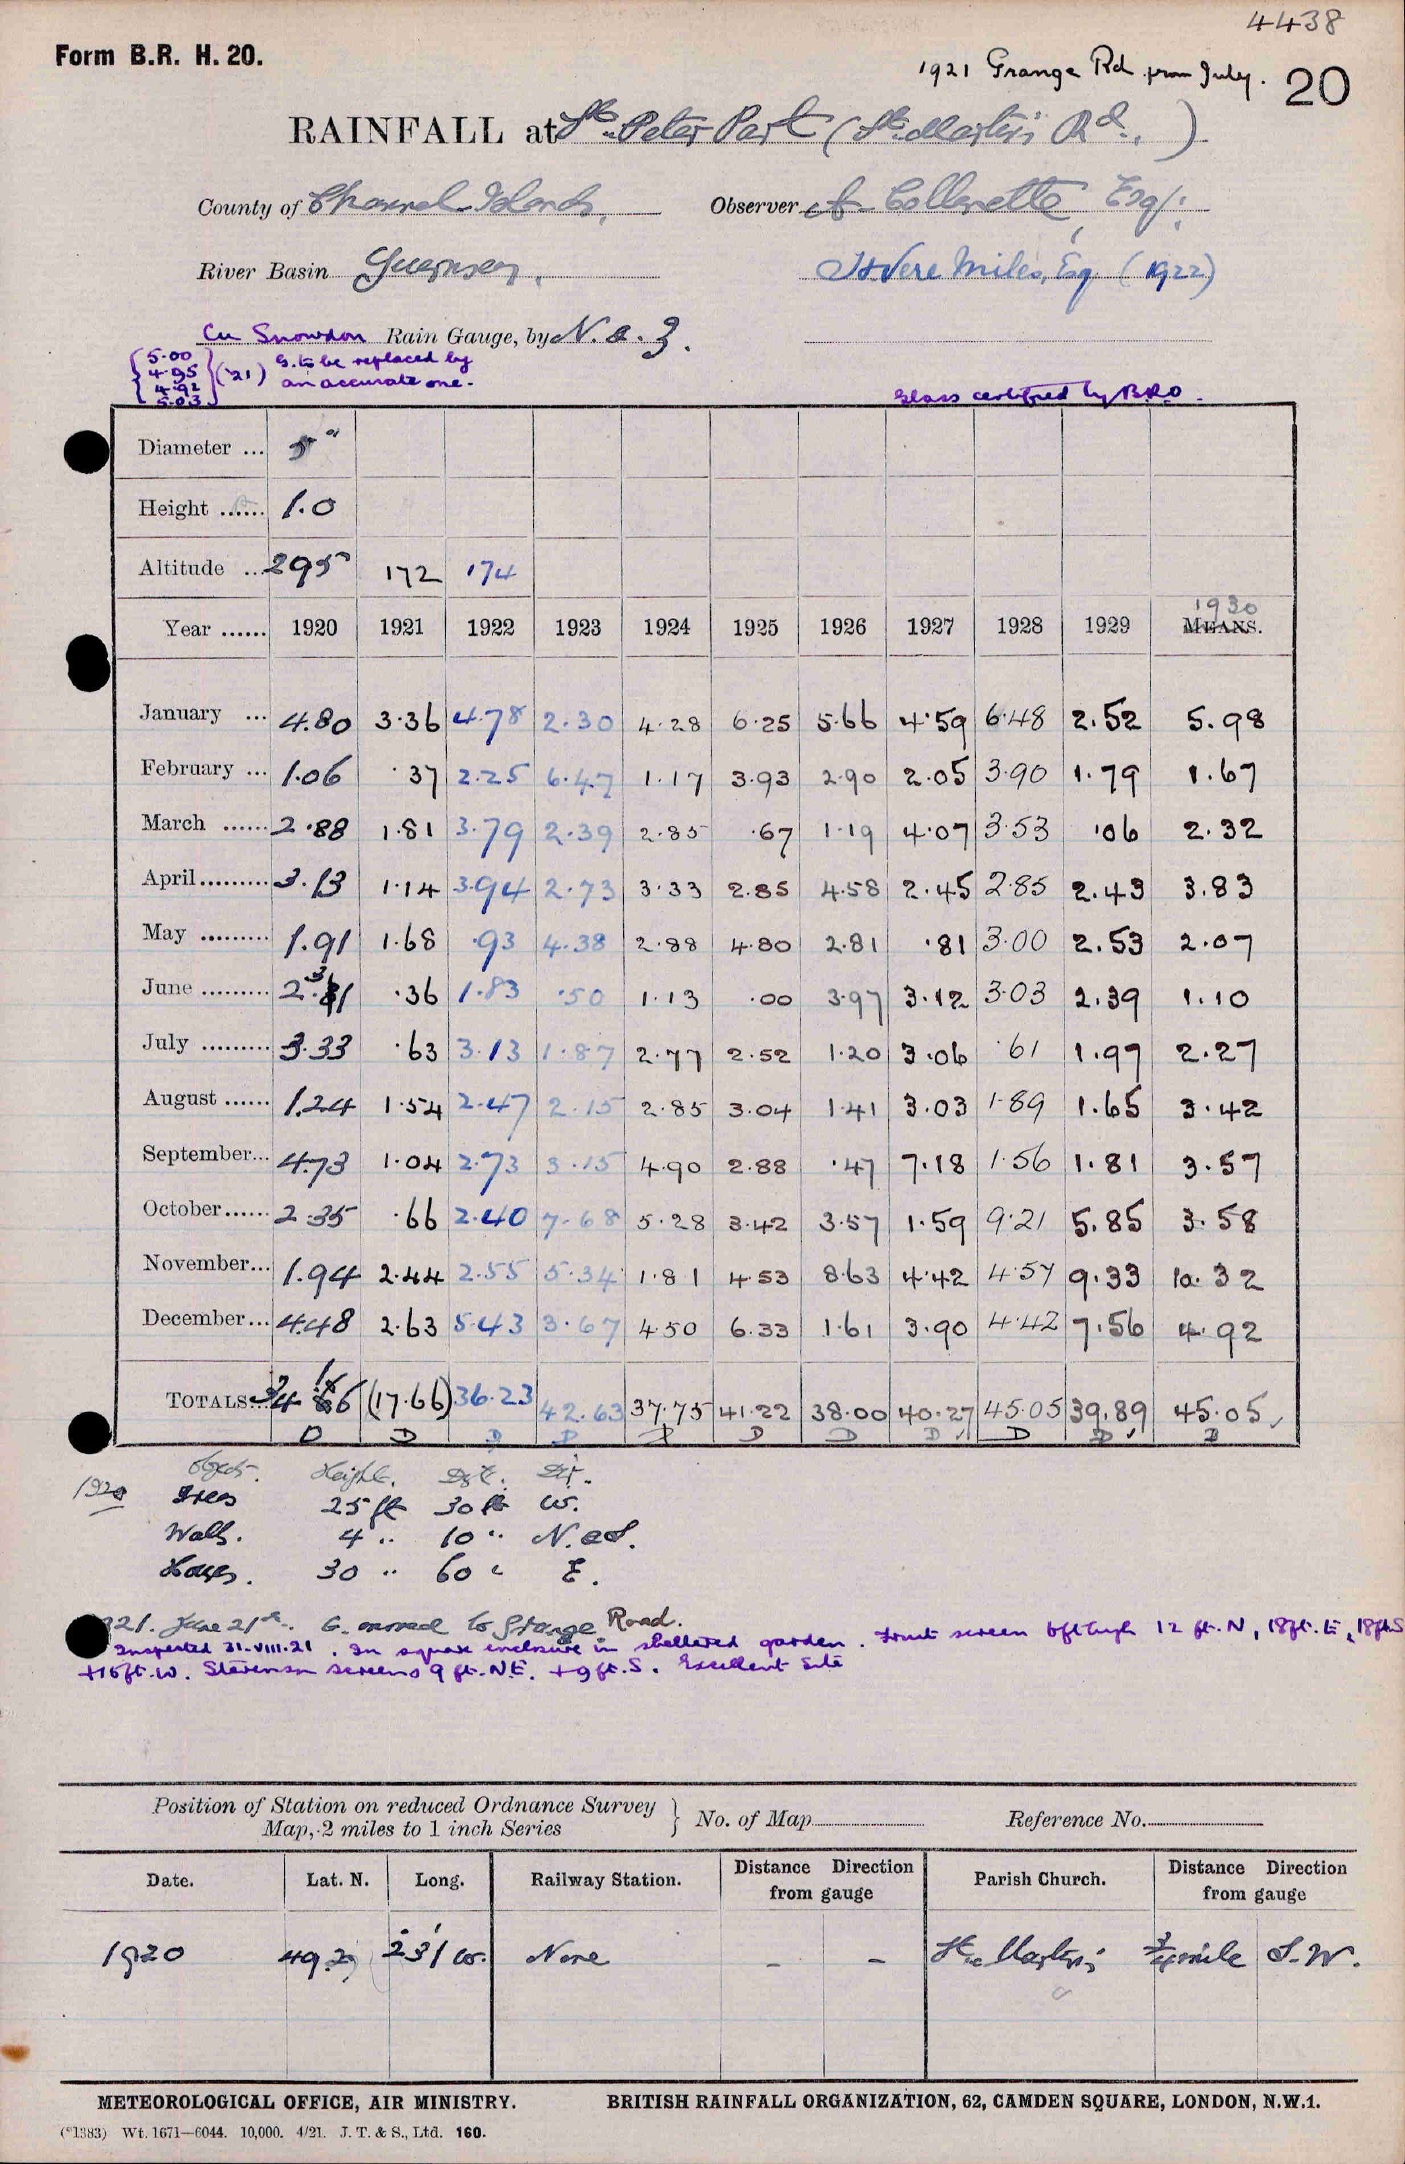 4438
Form B.R. H. 20.
1921 Grange Rd from July.
20
RAINFALL at St. Peter Port (St. Martin's Rd.)
County of Channel Islands. Observer A. Collenette, Esq.
River Basin Guernsey. Vere Miles, Esq (1922)
Cu Snowdon Rain Gauge, by N. & Z.
{5.00 4.95 4.92 5.03} ('21) G. to be replaced by
an accurate one.
Glass certified by B.R.O.
Diameter ... 5"
Height ...... 1.0
Altitude ... 295 172 174
Year ...... 1920 1921 1922 1923 1924 1925 1926 1927 1928 1929 MEANS. 1930
January ... 4.80 3.36 4.78 2.30 4.28 6.25 5.66 4.59 6.48 2.52 5.98
February ... 1.06 .37 2.25 6.47 1.17 3.93 2.90 2.05 3.90 1.79 1.67
March ...... 2.88 1.81 3.79 2.39 2.85 .67 1.19 4.07 3.53 .06 2.32
April ......... 3.13 1.14 3.94 2.73 3.33 2.85 4.58 2.45 2.85 2.43 3.83
May ......... 1.91 1.68 .93 4.38 2.88 4.80 2.81 .81 3.00 2.53 2.07
June ......... 2.31 .36 1.83 .50 1.13 .00 3.97 3.12 3.03 2.39 1.10
July ......... 3.33 .63 3.13 1.87 2.77 2.52 1.20 3.06 .61 1.97 2.27
August ...... 1.24 1.54 2.47 2.15 2.85 3.04 1.41 3.03 1.89 1.65 3.42
September... 4.73 1.04 2.73 3.15 4.90 2.88 .47 7.18 1.56 1.81 3.57
October ...... 2.35 .66 2.40 7.68 5.28 3.42 3.57 1.59 9.21 5.85 3.58
November... 1.94 2.44 2.55 5.34 1.81 4.53 8.63 4.42 4.57 9.33 10.32
December... 4.48 2.63 5.43 3.67 4.50 6.33 1.61 3.90 4.42 7.56 4.92
TOTALS... 34.16 (17.66) 36.23 42.63 37.75 41.22 38.00 40.27 45.05 39.89 45.05
D D D D D D D D D D D
Object. Height. Dist. Dir.
1920 Trees 25 ft 30 ft W.
Walls. 4 " 10 " N. & S.
Houses. 30 " 60 " E.
1921. June 21st. G. moved to Grange Road.
Inspected 31.VIII.21. In square enclosure in sheltered garden. Fruit screen 6ft high 12 ft. N, 18ft. E, 18ft. S
+16ft. W. Stevenson screens 9 ft. N.E. + 9ft. S. Excellent Site
Position of Station on reduced Ordnance Survey
Map, 2 miles to 1 inch Series } No. of Map Reference No.
Date. Lat. N. Long. Railway Station. Distance Direction from gauge Parish Church. Distance Direction from gauge
1920 49.27 2° 31' W. None – – St. Martin's ¾ mile S.W.
METEOROLOGICAL OFFICE, AIR MINISTRY. BRITISH RAINFALL ORGANIZATION, 62, CAMDEN SQUARE, LONDON, N.W.1.
(*1383) Wt. 1671—6044. 10,000. 4/21. J. T. & S., Ltd. 160.